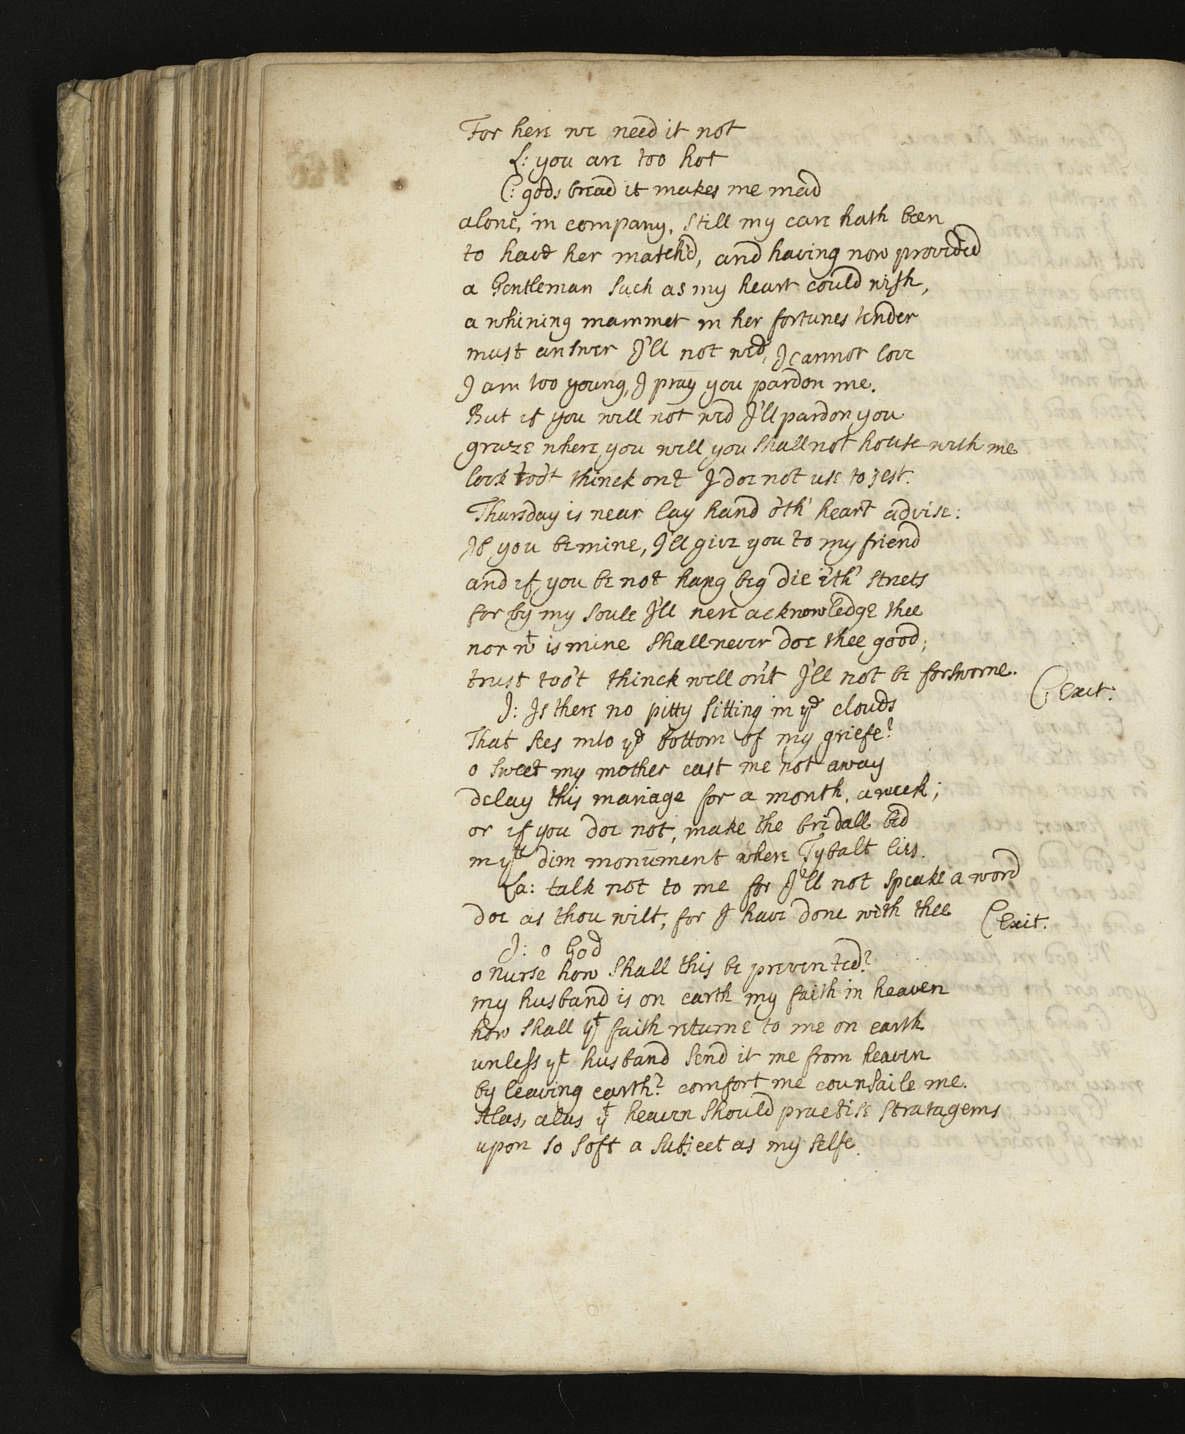 For here we need it not
L: you are too hot
C: gods bread it makes me mad
alone, in company, still my care hath been
to have her match'd, and having now provided
a Gentleman such as my heart could wish,
a whining mammet in her fortunes tender
must answer I'll not wed, I cannot love
I am too young, I pray you pardon me.
But if you will not wed I'll pardon you
graze where you will you shall not house with me
look too't thinck on't I doe not use to jest.
Thursday is near lay hand o'th' heart advise:
If you be mine, I'll give you to my friend
and if you be not hang beg die i'th' streets
for by my soule I'll nere acknowledge thee
nor wt is mine shall never doe thee good;
trust too't thinck well on't I'll not be forsworne.
C: Exit:
J: Is there no pitty sitting in ye clouds
That sees into ye bottom of my griefe?
o sweet my mother cast me not away
delay this mariage for a month, a week;
or if you doe not, make the bridall bed
in yt dim monument where Tybalt lies.
La: talk not to me for I'll not speake a word
doe as thou wilt, for I have done with thee
Exit.
J: o God
o Nurse how shall this be prevented?
my husband is on earth my faith in heaven
how shall yt faith returne to me on earth
unless yt husband send it me from heaven
by leaving earth? comfort me counsaile me.
Alas, alas yt heaven should practise stratagems
upon so soft a subject as my selfe.